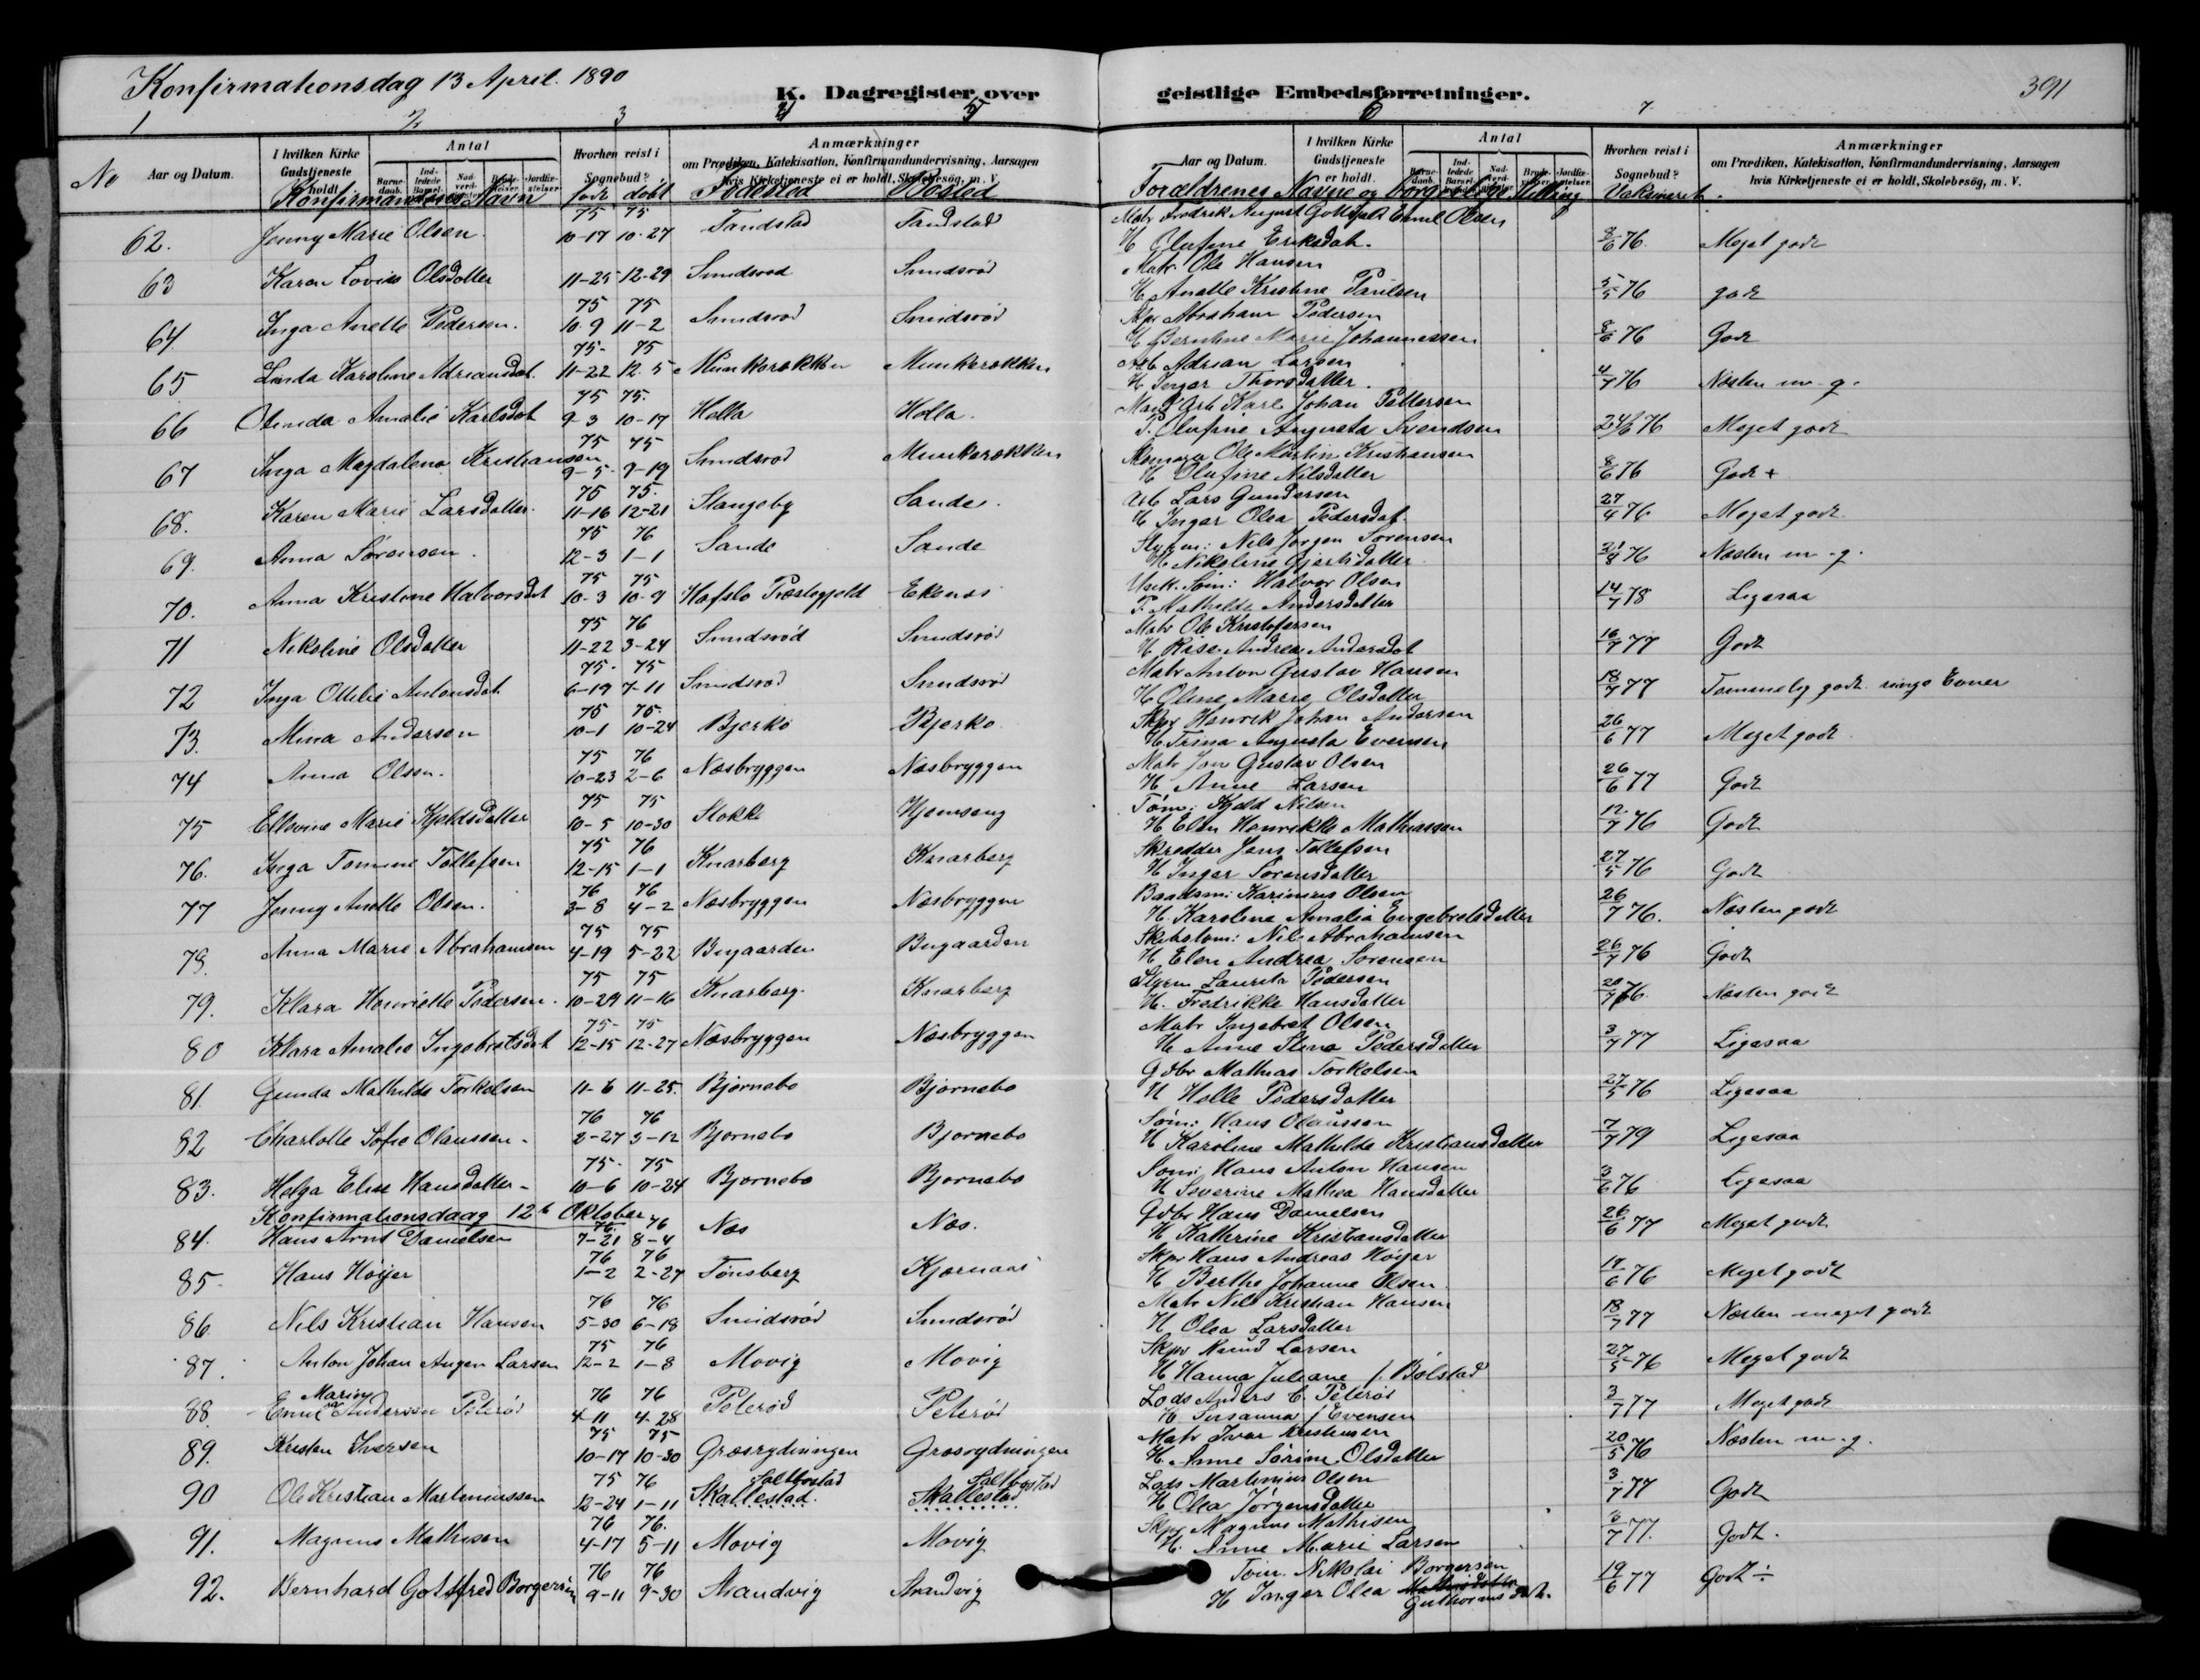 Konfirmationsdag 13 April. 1890
K. Dagregister over geistlige Embedsforretninger.
391
1 2 3 4 5 6 7
No Aar og Datum. I hvilken Kirke Gudstjeneste holdt Antal Hvorhen reist i Sognebud? Anmærkninger om Prædiken, Katekisation, Konfirmandundervisning, Aarsagen hvis Kirketjeneste ei er holdt, Skolebesög, m. V.
Aar og Datum. I hvilken Kirke Gudstjeneste er holdt. Antal Hvorhen reist i Sognebud? Anmærkninger om Prædiken, Katekisation, Konfirmandundervisning, Aarsagen hvis Kirketjeneste ei er holdt, Skolebesög, m. V.
Konfirmandens Navn født døbt Fødested Bosted Forældrenes Navne og borgerlige Stilling Vaksineret.
75 75 Matr Fredrik August Gottfalt Emil Olsen
62. Jenny Marie Olsen. 10-17 10-27 Tandstad Tandstad H Olufine Eriksdat. 8/6 76. Meget godt
Matr. Ole Hansen
63 Karen Lovise Olsdatter 11-25 12-29 Smidsrød Smidsrød H Anette Kristine Paulsen 5/5 76 godt
75 75 Skpr Abraham Pedersen
64. Inga Anette Pedersen. 10-9 11-2 Smidsrød Smidsrød H Berntine Marie Johannessen 8/6 76 Godt
75- 75 Arb Adrian Larsen
65 Linda Karoline Adriansdat. 11-22 12-5 Munkerækken Munkerækken H Inger Thorsdatter. 4/7 76 Næsten m. g.
75 75. Arb Karl Johan Pettersen
66 Olinda Amalie Karlsdat 9-3 10-17 Holla Holla. P. Olufine Augusta Svendsen 24/6 76 Meget godt
75 75 Ole Martin Kristiansen
67 Inga Magdalena Kristiansen 9-5- 9-19 Smidsrød Munkerækken H Olufine Nilsdatter 8/6 76 Godt +
75 75. Arb Lars Gundersen
68. Karen Marie Larsdatter. 11-16 12-21 Slangeby Sande. H Inger Olea Pedersdat. 27/4 76 Meget godt
75 76 Styrm: Nils Jørgen Sørensen
69. Anna Sørensen. 12-3 1-1 Sande Sande H Nikoline Gjertsdatter 31/8 76 Næsten m. g.
75 75 Ugift Søm: Halvor Olsen
70. Anna Kristine Halvorsdat 10-3 10-9 Hafslo Præstegjeld Ekenæs P. Mathilde Andersdatter 14/7 78 Ligesaa
75 76 Matr Ole Kristofersen
71 Nikoline Olsdatter 11-22 3-24 Smidsrød Smidsrød H Risa Andrea Andersdat 16/7 77 Godt
75- 75 Matr Anton Gustav Hansen
72 Inga Ottilie Antonsdat. 6-19 7-11 Smidsrød Smidsrød H Oline Marie Olsdatter 18/7 77 Tommelig godt ringe Evner
75 75. Skpr Henrik Johan Andersen
73. Mina Andersen 10-1 10-24 Bjerkø Bjerkø H Trina Augusta Evensen 26/6 77 Meget godt
75 76 Matr Jan Gustav Olsen
74 Anna Olsen. 10-23 2-6 Næsbryggen Næsbryggen H Anne Larsen 26/6 77 Godt
75 75 Tøm: Kjeld Nilsen
75 Ellevine Marie Kjeldsdatter 10-5 10-30 Stokke Hjemseng H Elen Henrikke Mathiassen 12/7 76 Godt
75 76 Skredder Jens Tollefsen
76. Inga Tomine Tollefsen 12-15 1-1 Knarberg Knarberg H Inger Sørensdatter 27/5 76 Godt
76 76 Baadsm: Karinius Olsen
77 Jenny Anette Olsen. 3-8 4-2 Næsbryggen Næsbryggen H. Karoline Amalia Engebretsdatter 26/7 76. Næsten godt
75 75 Nils Abrahamsen
78. Anna Marie Abrahamsen 4-19 5-22 Bugaarden Bugaarden H Elen Andrea Sørensen 26/7 76 Godt
75 75 Styrm Laurits Pedersen
79. Klara Henriette Pedersen. 10-29 11-16 Knarberg. Knarberg H. Fredrikke Hansdatter 20/7 76. Næsten godt
75- 75 Matr Ingebret Olsen
80 Klara Amalie Ingebretsdat 12-15 12-27 Næsbryggen Næsbryggen H Anne Stine Pedersdatter 3/7 77 Ligesaa
Gdbr Mathias Torkelsen
81. Gunda Mathilde Torkelsen 11-6 11-25. Bjørnebo Bjørnebo H Helle Pedersdatter 27/5 76 Ligesaa
76 76 Søm: Hans Olaussen
82 Charlotte Sofie Olaussen. 2-27 3-12 Bjørnebo Bjørnebo H Karoline Mathilde Kristiansdatter 7/7 79 Ligesaa
75- 75 Søm: Hans Anton Hansen
83. Helga Elise Hansdatter. 10-6 10-24 Bjørnebo Bjørnebo H Severine Mathea Hansdatter 3/6 76 Ligesaa
Konfirmationsdaag 12te Oktober Gdbr Hans Danielsen
76. 76
84. Hans Arnt Danielsen 7-21 8-4 Næs Næs. H Katherine Kristiansdatter 26/6 77 Meget godt
76 76 Skpr Hans Andreas Høijer
85- Hans Høijer 1-2 2-27 Tønsberg Kjørnaas H Berthe Johanne Olsen 17/6 76 Meget godt
76 76 Matr Nils Kristian Hansen
86. Nils Kristian Hansen 5-30 6-18 Smidsrød Smidsrød H Olea Larsdatter 18/7 77 Næsten meget godt
75 76 Skpr Knud Larsen
87. Anton Johan Augen Larsen 12-2 1-8 Movig Movig H Hanna Juliane f. Bølstad 27/5 76 Meget godt
Marius 76 76 Lods Anders C. Peterød
88. Emil Anderssen Peterød 4-11 4-28 Peterød Peterød H Susanna f Evensen 3/7 77 Meget godt
75 75 Matr Ivar Kristensen
89. Kristen Iversen 10-17 10-30 Græsrydningen Græsrydningen H. Anne Sørine Olsdatter 20/5 76 Næsten m. g.
75 76 Saltbostad Saltbostad Lods Martinius Olsen
90 Ole Kristian Martiniussen 12-24 1-11 Skallestad. Skallestad H Olea Jørgensdatter 3/7 77 Godt
76 76. Skpr Magnus Mathisen
91. Magnus Mathisen 4-17 5-11 Movig Movig H. Anne Marie Larsen 3/7 77. Godt.
76 76 Tøm. Nikolai Borgersen
92. Bernhard Gottfred Borgersen 9-11 9-30 Strandvig Strandvig H Inger Olea Guthormsdat. 19/6 77 Godt ÷